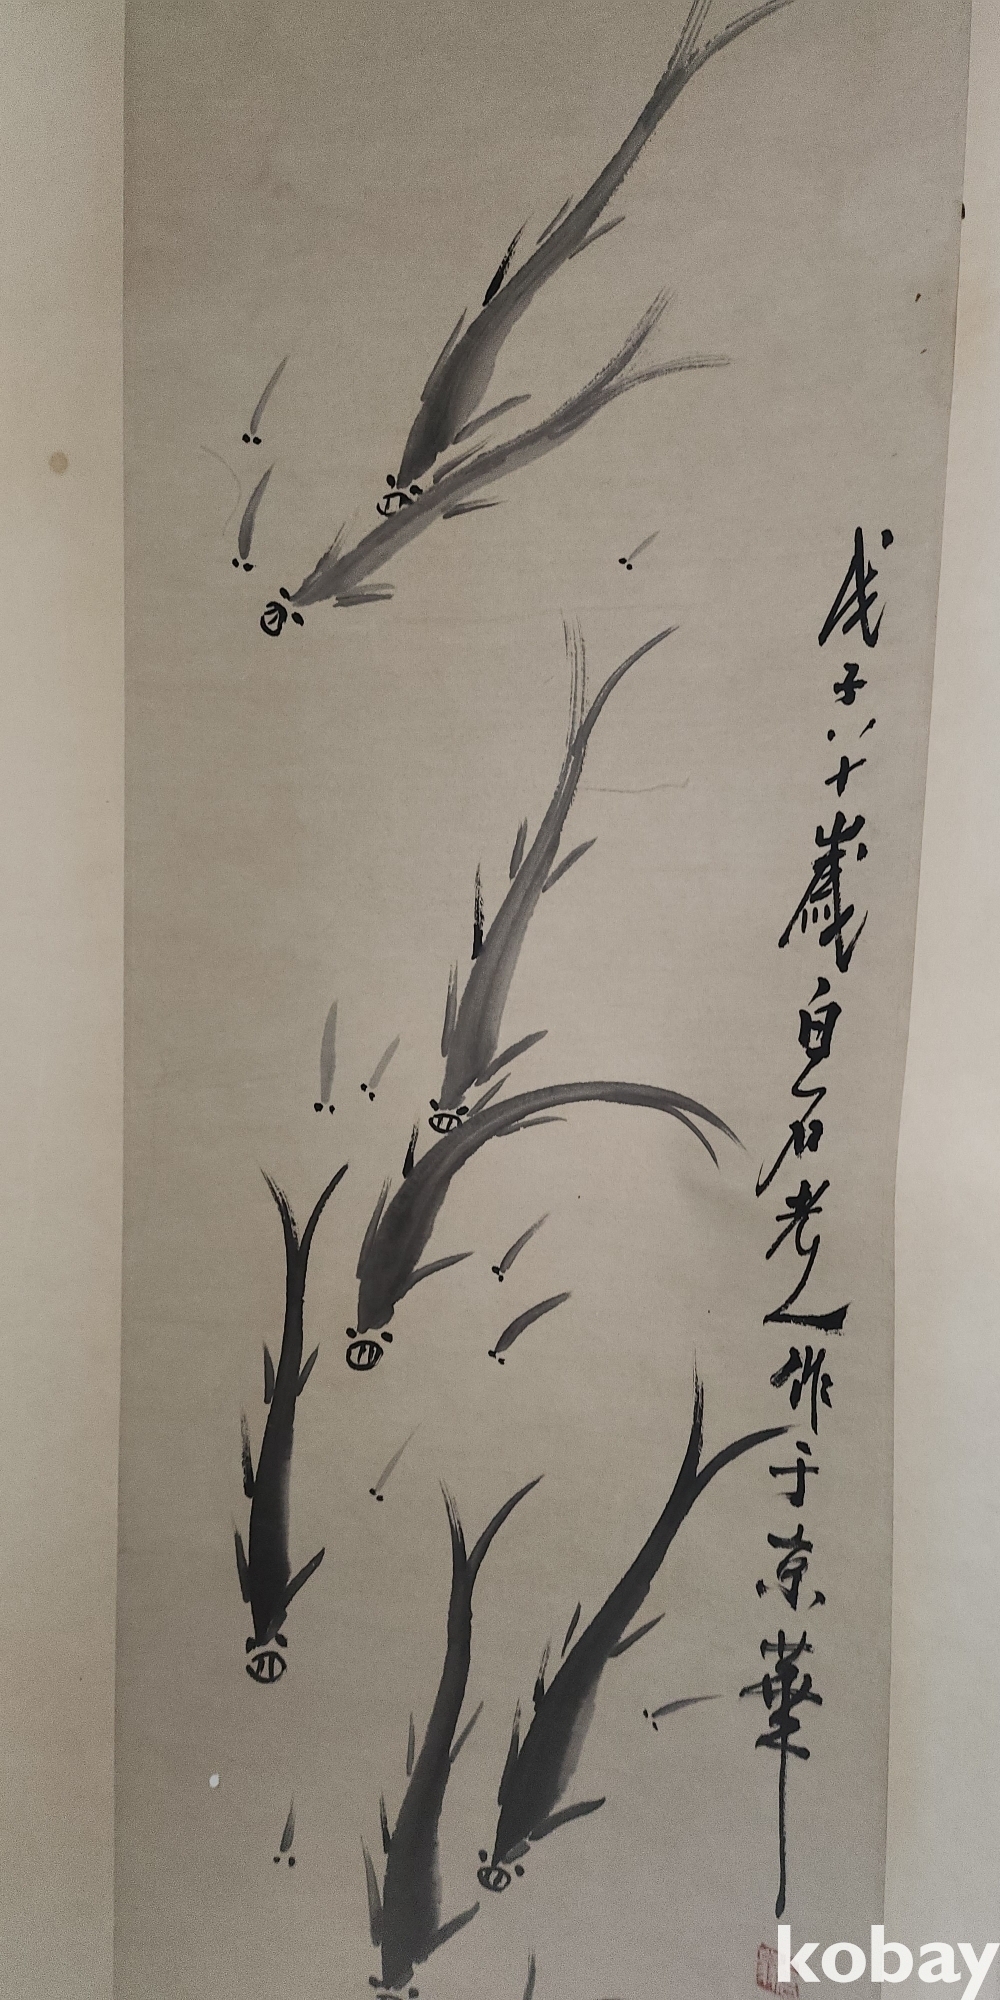 戊子八十歲白石老人作于京華
kobay